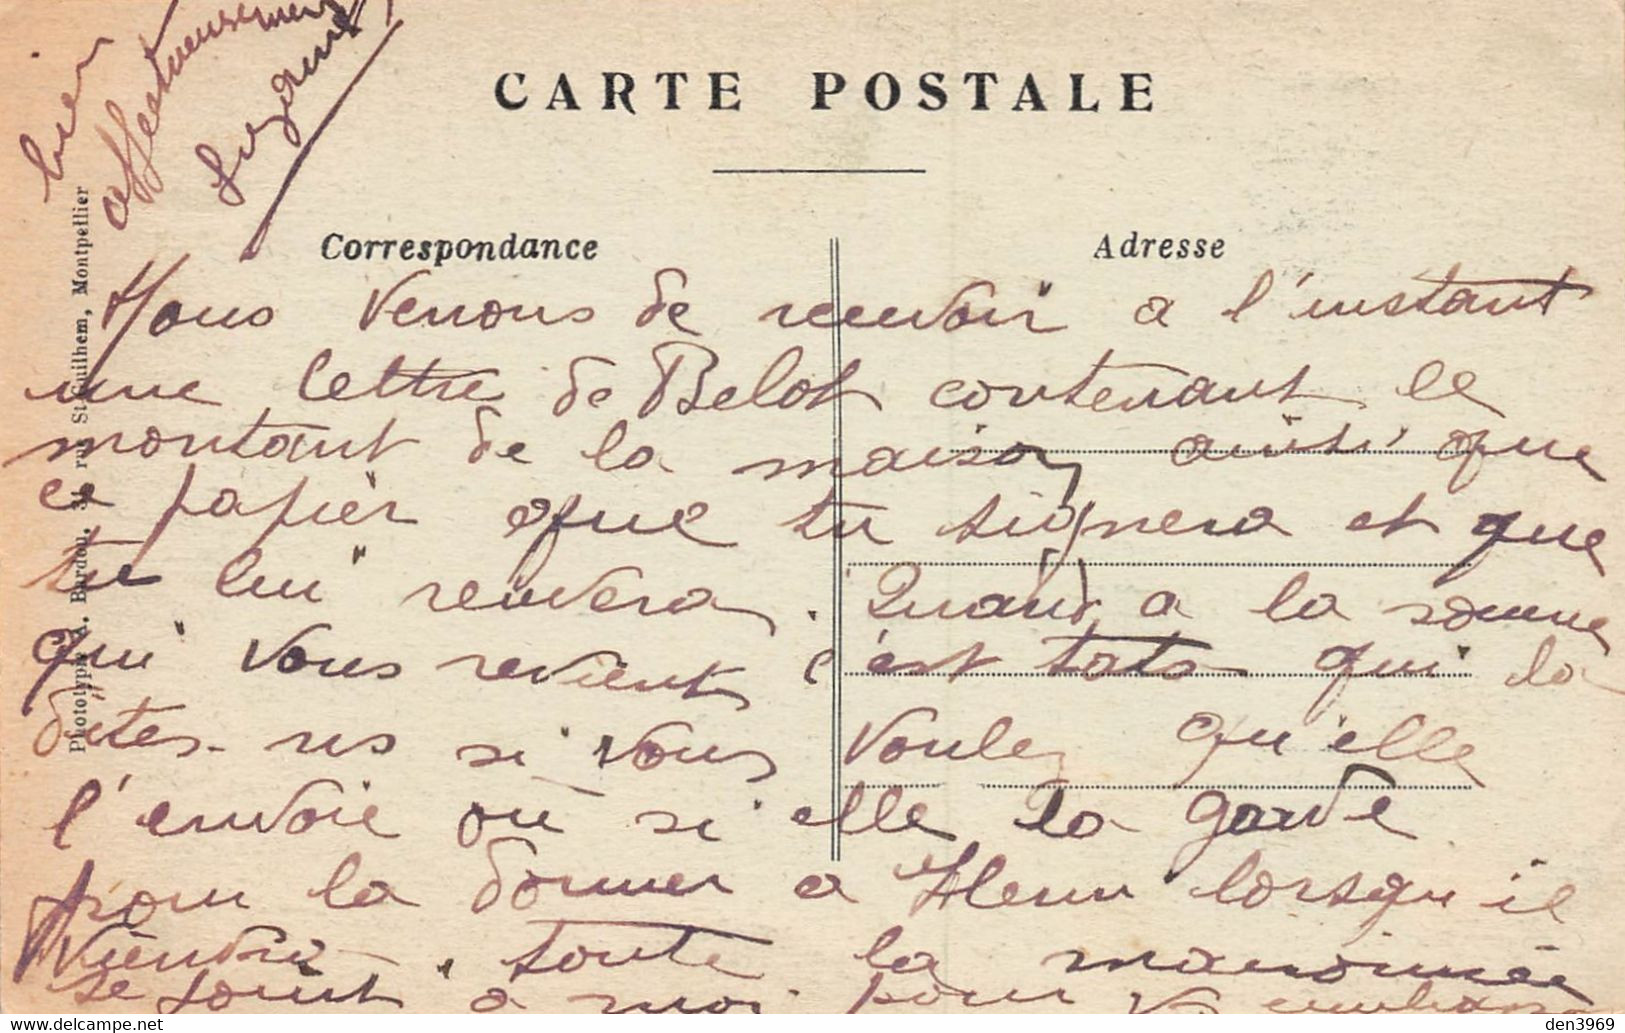 bien
affectueusement
Suzanne
CARTE POSTALE
Correspondance
Adresse
Phototypie A. Bardou, 31, rue St-Guilhem, Montpellier
Nous venons de recevoir a l'instant
une lettre de Belot contenant le
montant de la maison ainsi que
ce papier que tu signera et que
tu lui renvera. Quand a la somme
qui vous revient c'est tata qui la
dites-ns si vous voulez qu'elle
l'envoie ou si elle la garde
pour la donner a Henri lorsqu il
viendra. toute la maisonnée
se joint a moi pour vs embrasser
den3969